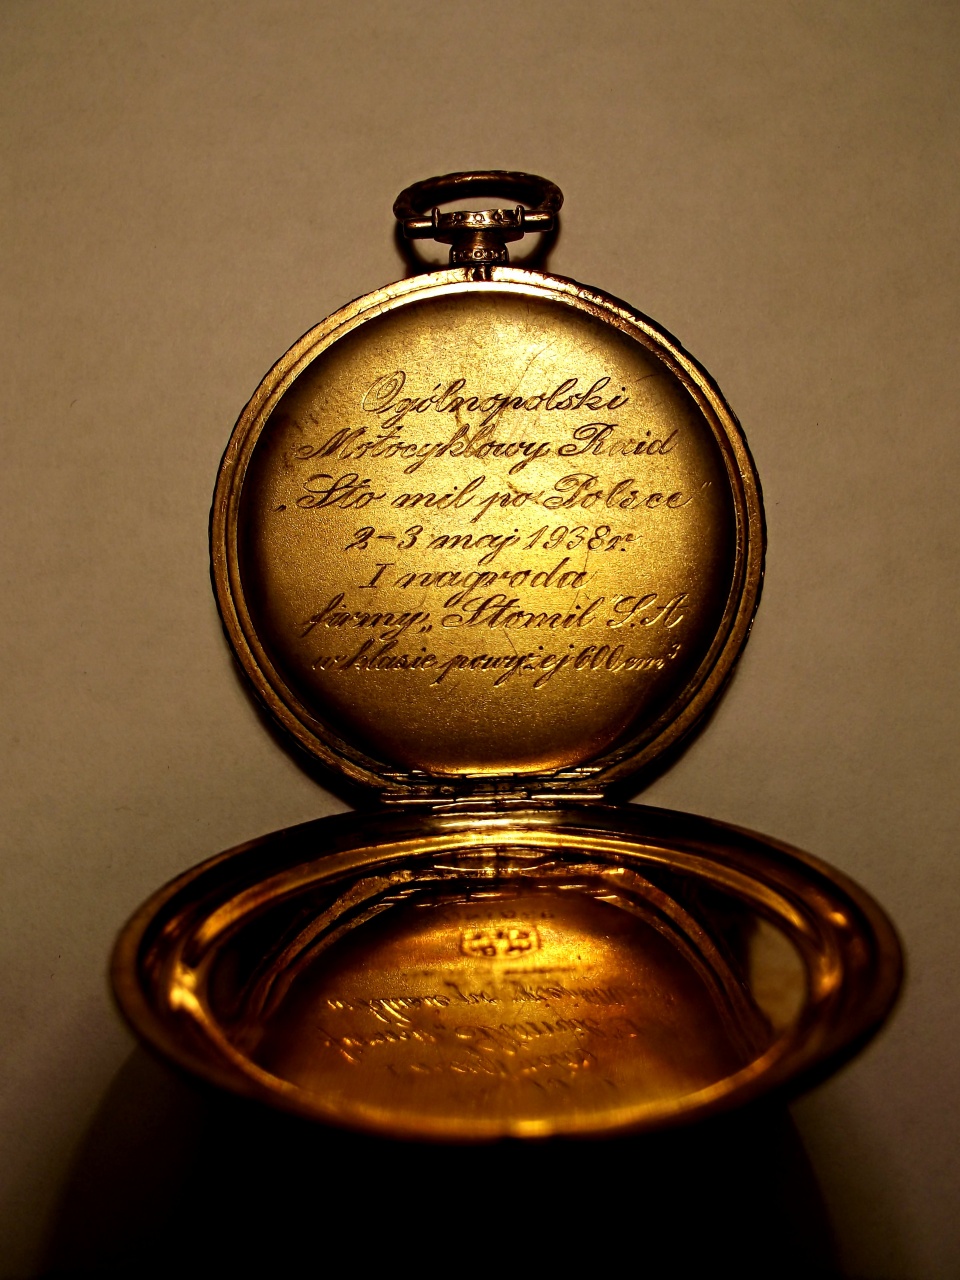 Ogólnopolski
Motocyklowy Raid
„Sto mil po Polsce"
2-3 maj 1938r.
I nagroda
firmy „Stomil" S.A
w klasie powyżej 600 cm³